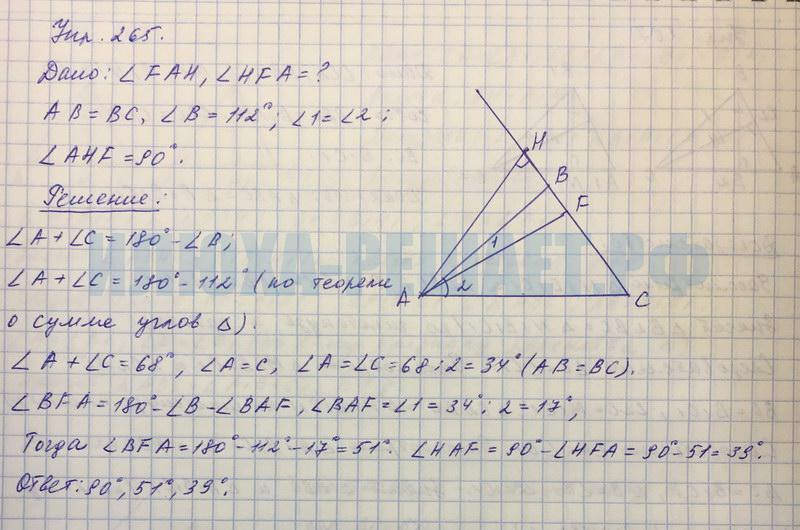 Упр. 265.
Дано: ∠FAH, ∠HFA = ?
AB = BC, ∠B = 112°; ∠1 = ∠2;
∠AHF = 90°.
Решение:
∠A + ∠C = 180° - ∠B;
∠A + ∠C = 180° - 112° (по теореме
о сумме углов Δ).
∠A + ∠C = 68°, ∠A = C, ∠A = ∠C = 68 : 2 = 34° (AB = BC).
∠BFA = 180° - ∠B - ∠BAF, ∠BAF = ∠1 = 34° : 2 = 17°,
Тогда ∠BFA = 180° - 112° - 17° = 51°. ∠HAF = 90° - ∠HFA = 90° - 51 = 39°.
Ответ: 90°, 51°, 39°.
H
B
F
1
2
A
C